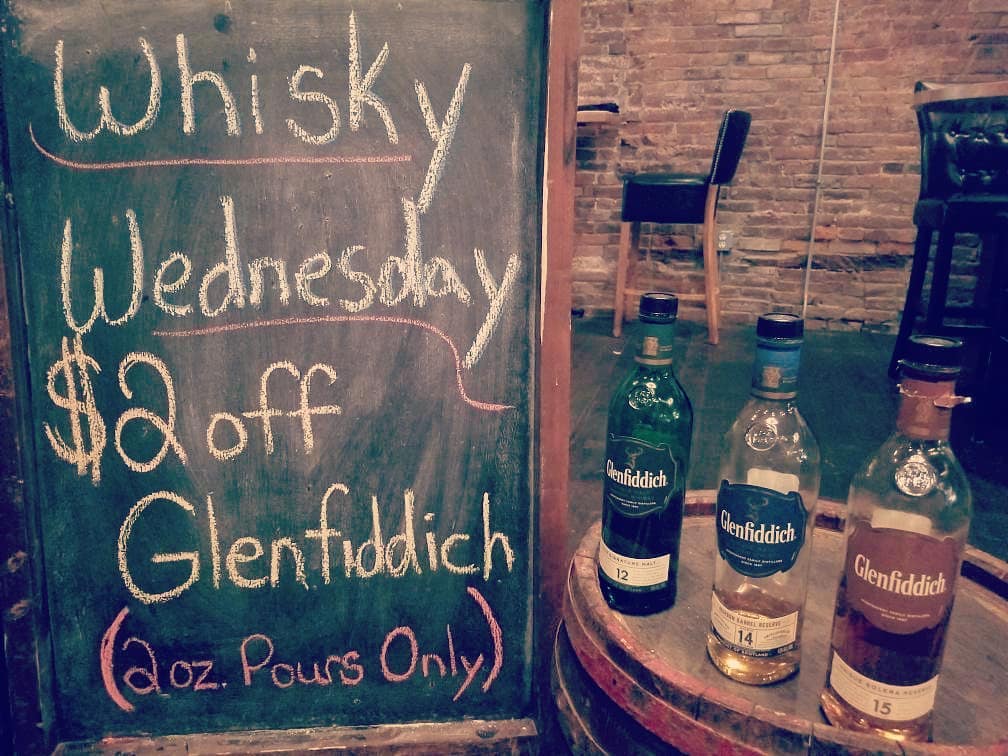 Whisky
Wednesday
$2 off
Glenfiddich
(2oz. Pours Only)
Glenfiddich
12
Glenfiddich
14
Glenfiddich
SOLERA RESERVE
15